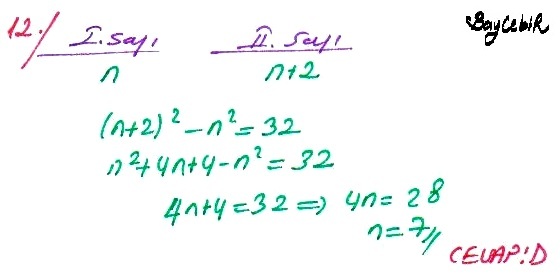 12./ I. sayı II. sayı BayCebiR
n n+2
(n+2)² - n² = 32
n² + 4n + 4 - n² = 32
4n + 4 = 32 => 4n = 28
n = 7//
CEVAP: D